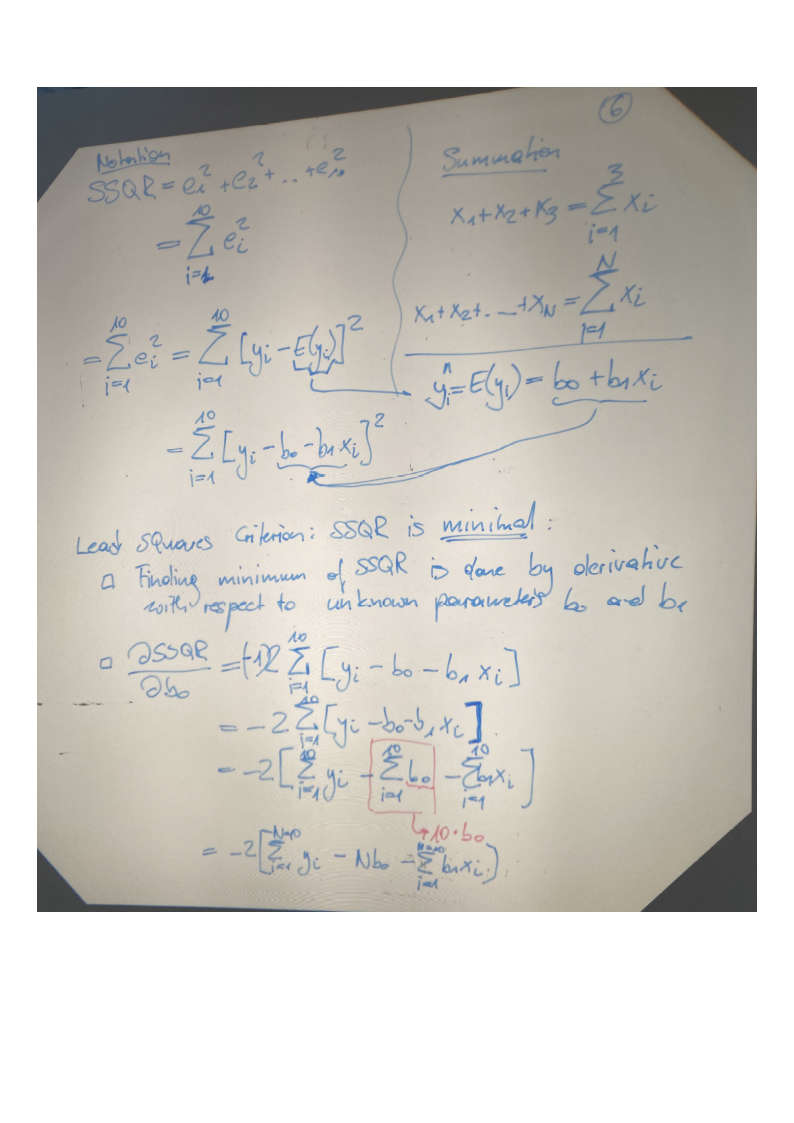 ⑥
Notation
SSQR = e₁² + e₂² + .. + e₁₀²
= ∑_{i=1}^{10} eᵢ²
= ∑_{i=1}^{10} eᵢ² = ∑_{i=1}^{10} [yᵢ - E(yᵢ)]²
= ∑_{i=1}^{10} [yᵢ - b₀ - b₁xᵢ]²
Summation
x₁ + x₂ + x₃ = ∑_{i=1}^{3} xᵢ
x₁ + x₂ + . ... + x_N = ∑_{i=1}^{N} xᵢ
ŷᵢ = E(yᵢ) = b₀ + b₁xᵢ
Least Squares Criterion: SSQR is minimal:
□ Finding minimum of SSQR is done by derivative
with respect to unknown parameters b₀ and b₁
□ ∂SSQR/∂b₀ = (-1)2 ∑_{i=1}^{10} [yᵢ - b₀ - b₁xᵢ]
= -2 ∑_{i=1}^{10} [yᵢ - b₀ - b₁xᵢ]
= -2 [∑_{i=1}^{10} yᵢ - ∑_{i=1}^{10} b₀ - ∑_{i=1}^{10} b₁xᵢ]
10 · b₀
= -2 [∑_{i=1}^{N=10} yᵢ - Nb₀ - ∑_{i=1}^{N=10} b₁xᵢ]